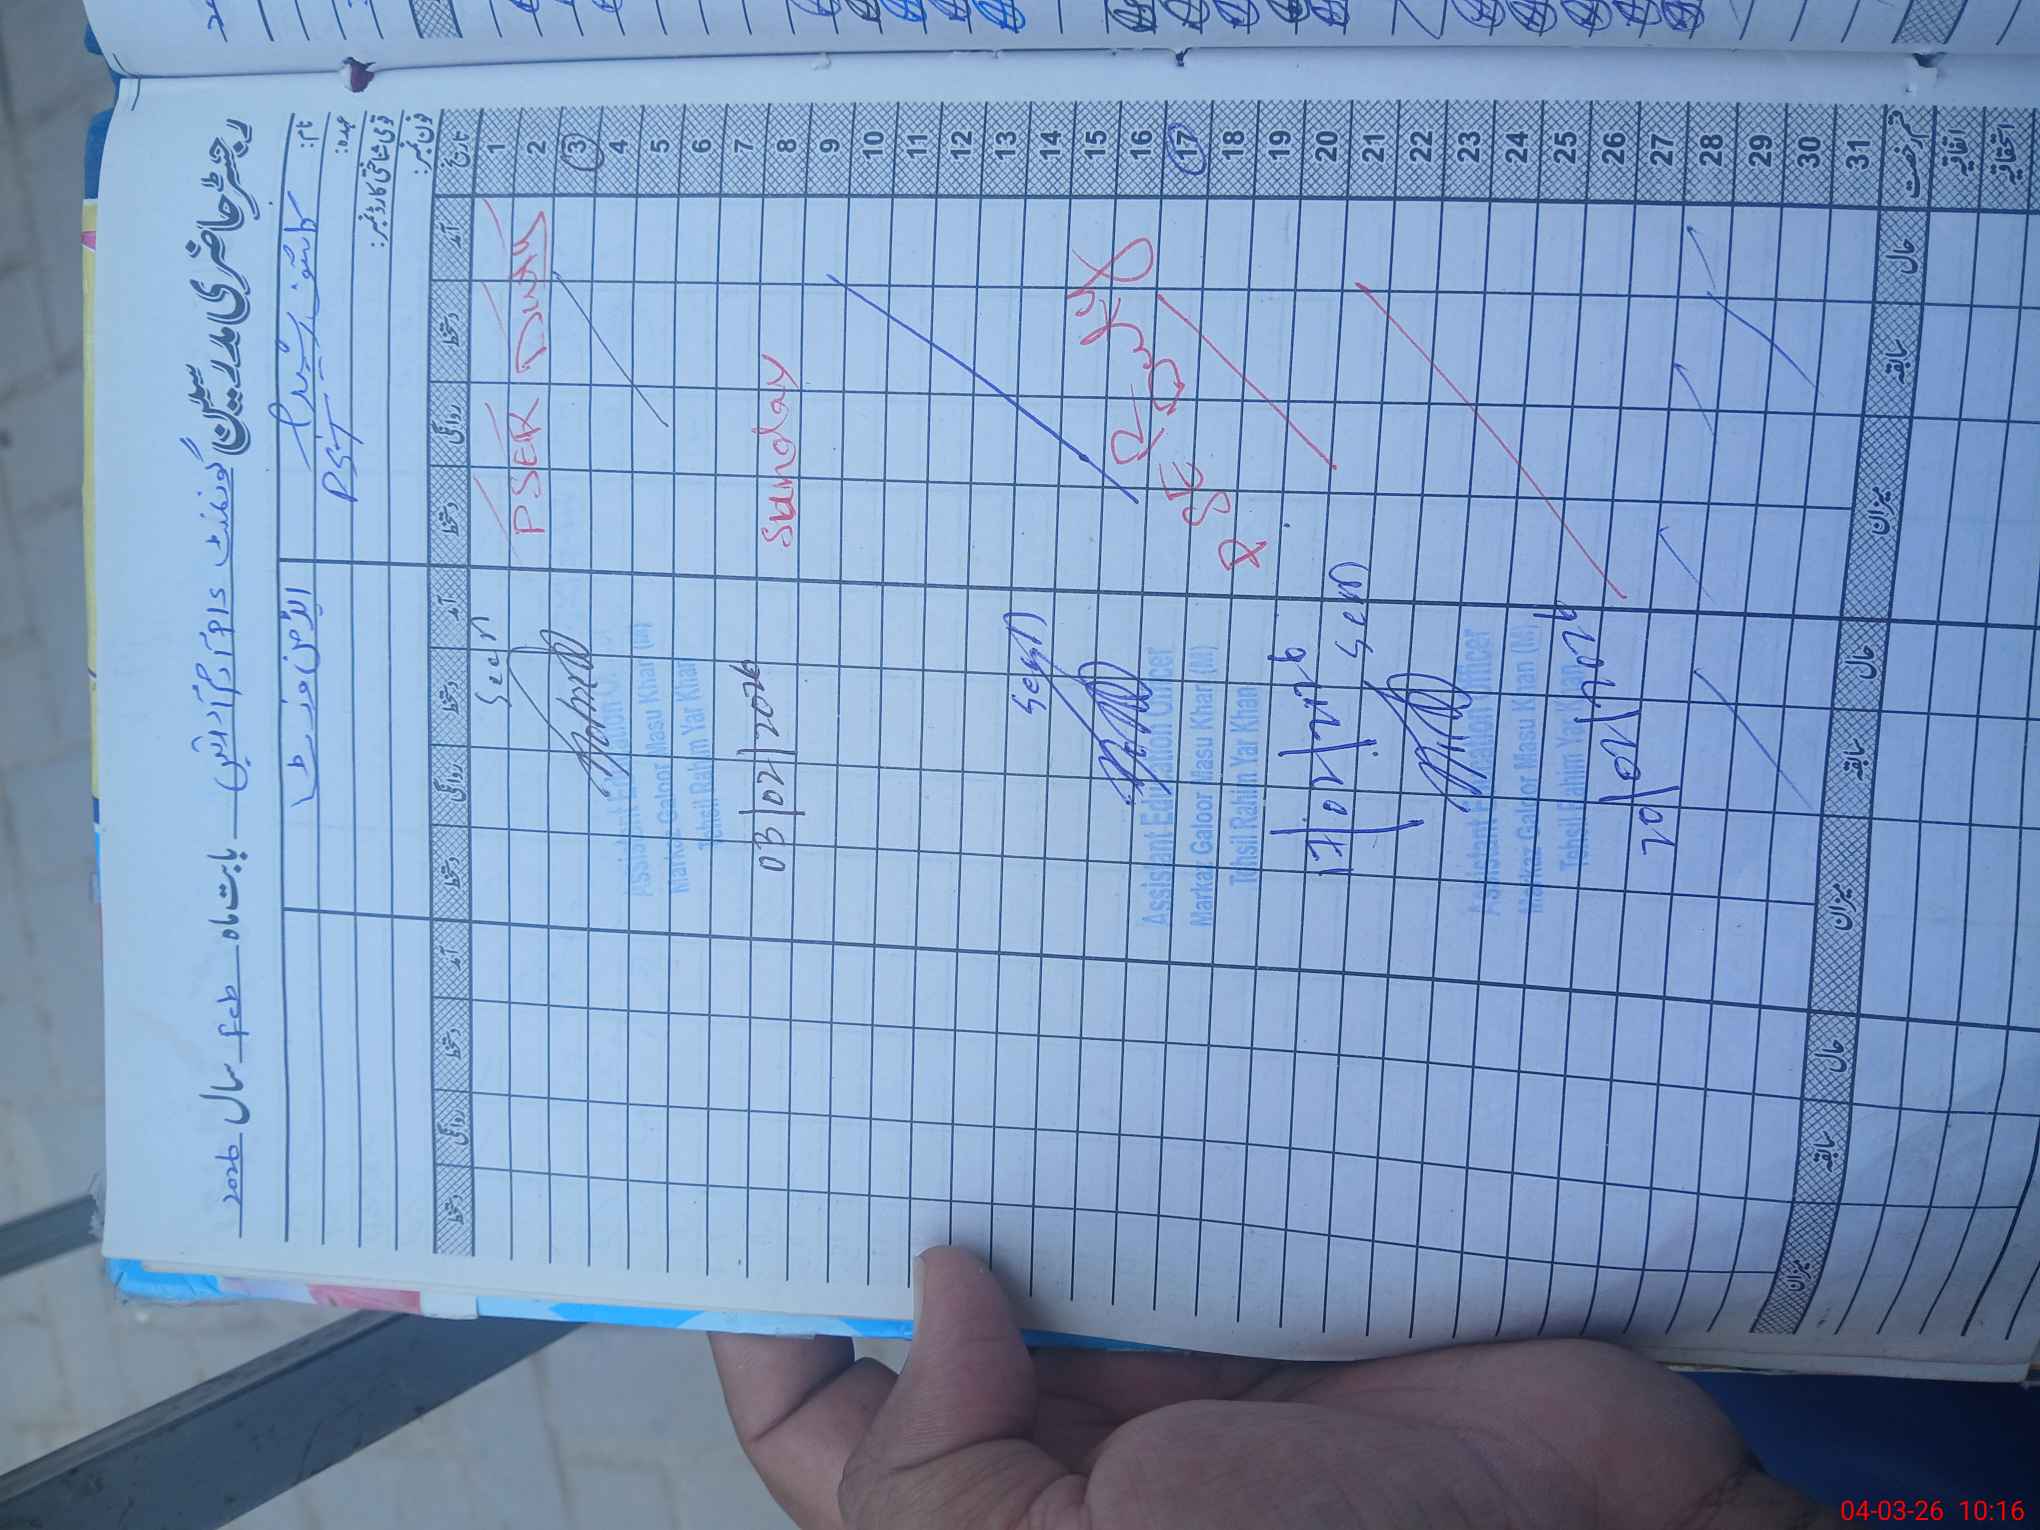 رجسٹر حاضری مدرسین گورنمنٹ
بابت ماہ feb سال 2026
نام:
عہدہ: PST
قومی شناختی کارڈ نمبر:
فون نمبر:
تاریخ آمد دستخط روانگی دستخط آمد دستخط روانگی دستخط آمد دستخط روانگی دستخط
1 Seen
2 PSER Duty
3
4
5
6
7
8 Sunday 03/02/2026
9
10
11
12
13
14 Seen
15
16
17
18
19
20 17/02/2026
21 Seen
22
23
24
25
26
27 20/02/2026
28
29
30
31
PSER Duty
Assistant Education Officer
Markaz Galoor Masu Khan (M)
Tehsil Rahim Yar Khan
Assistant Education Officer
Markaz Galoor Masu Khan (M)
Tehsil Rahim Yar Khan
Assistant Education Officer
Markaz Galoor Masu Khan (M)
Tehsil Rahim Yar Khan
قسم رخصت حال سابقہ میزان حال سابقہ میزان حال سابقہ میزان
اتفاقیہ
استحقاقیہ
04-03-26 10:16